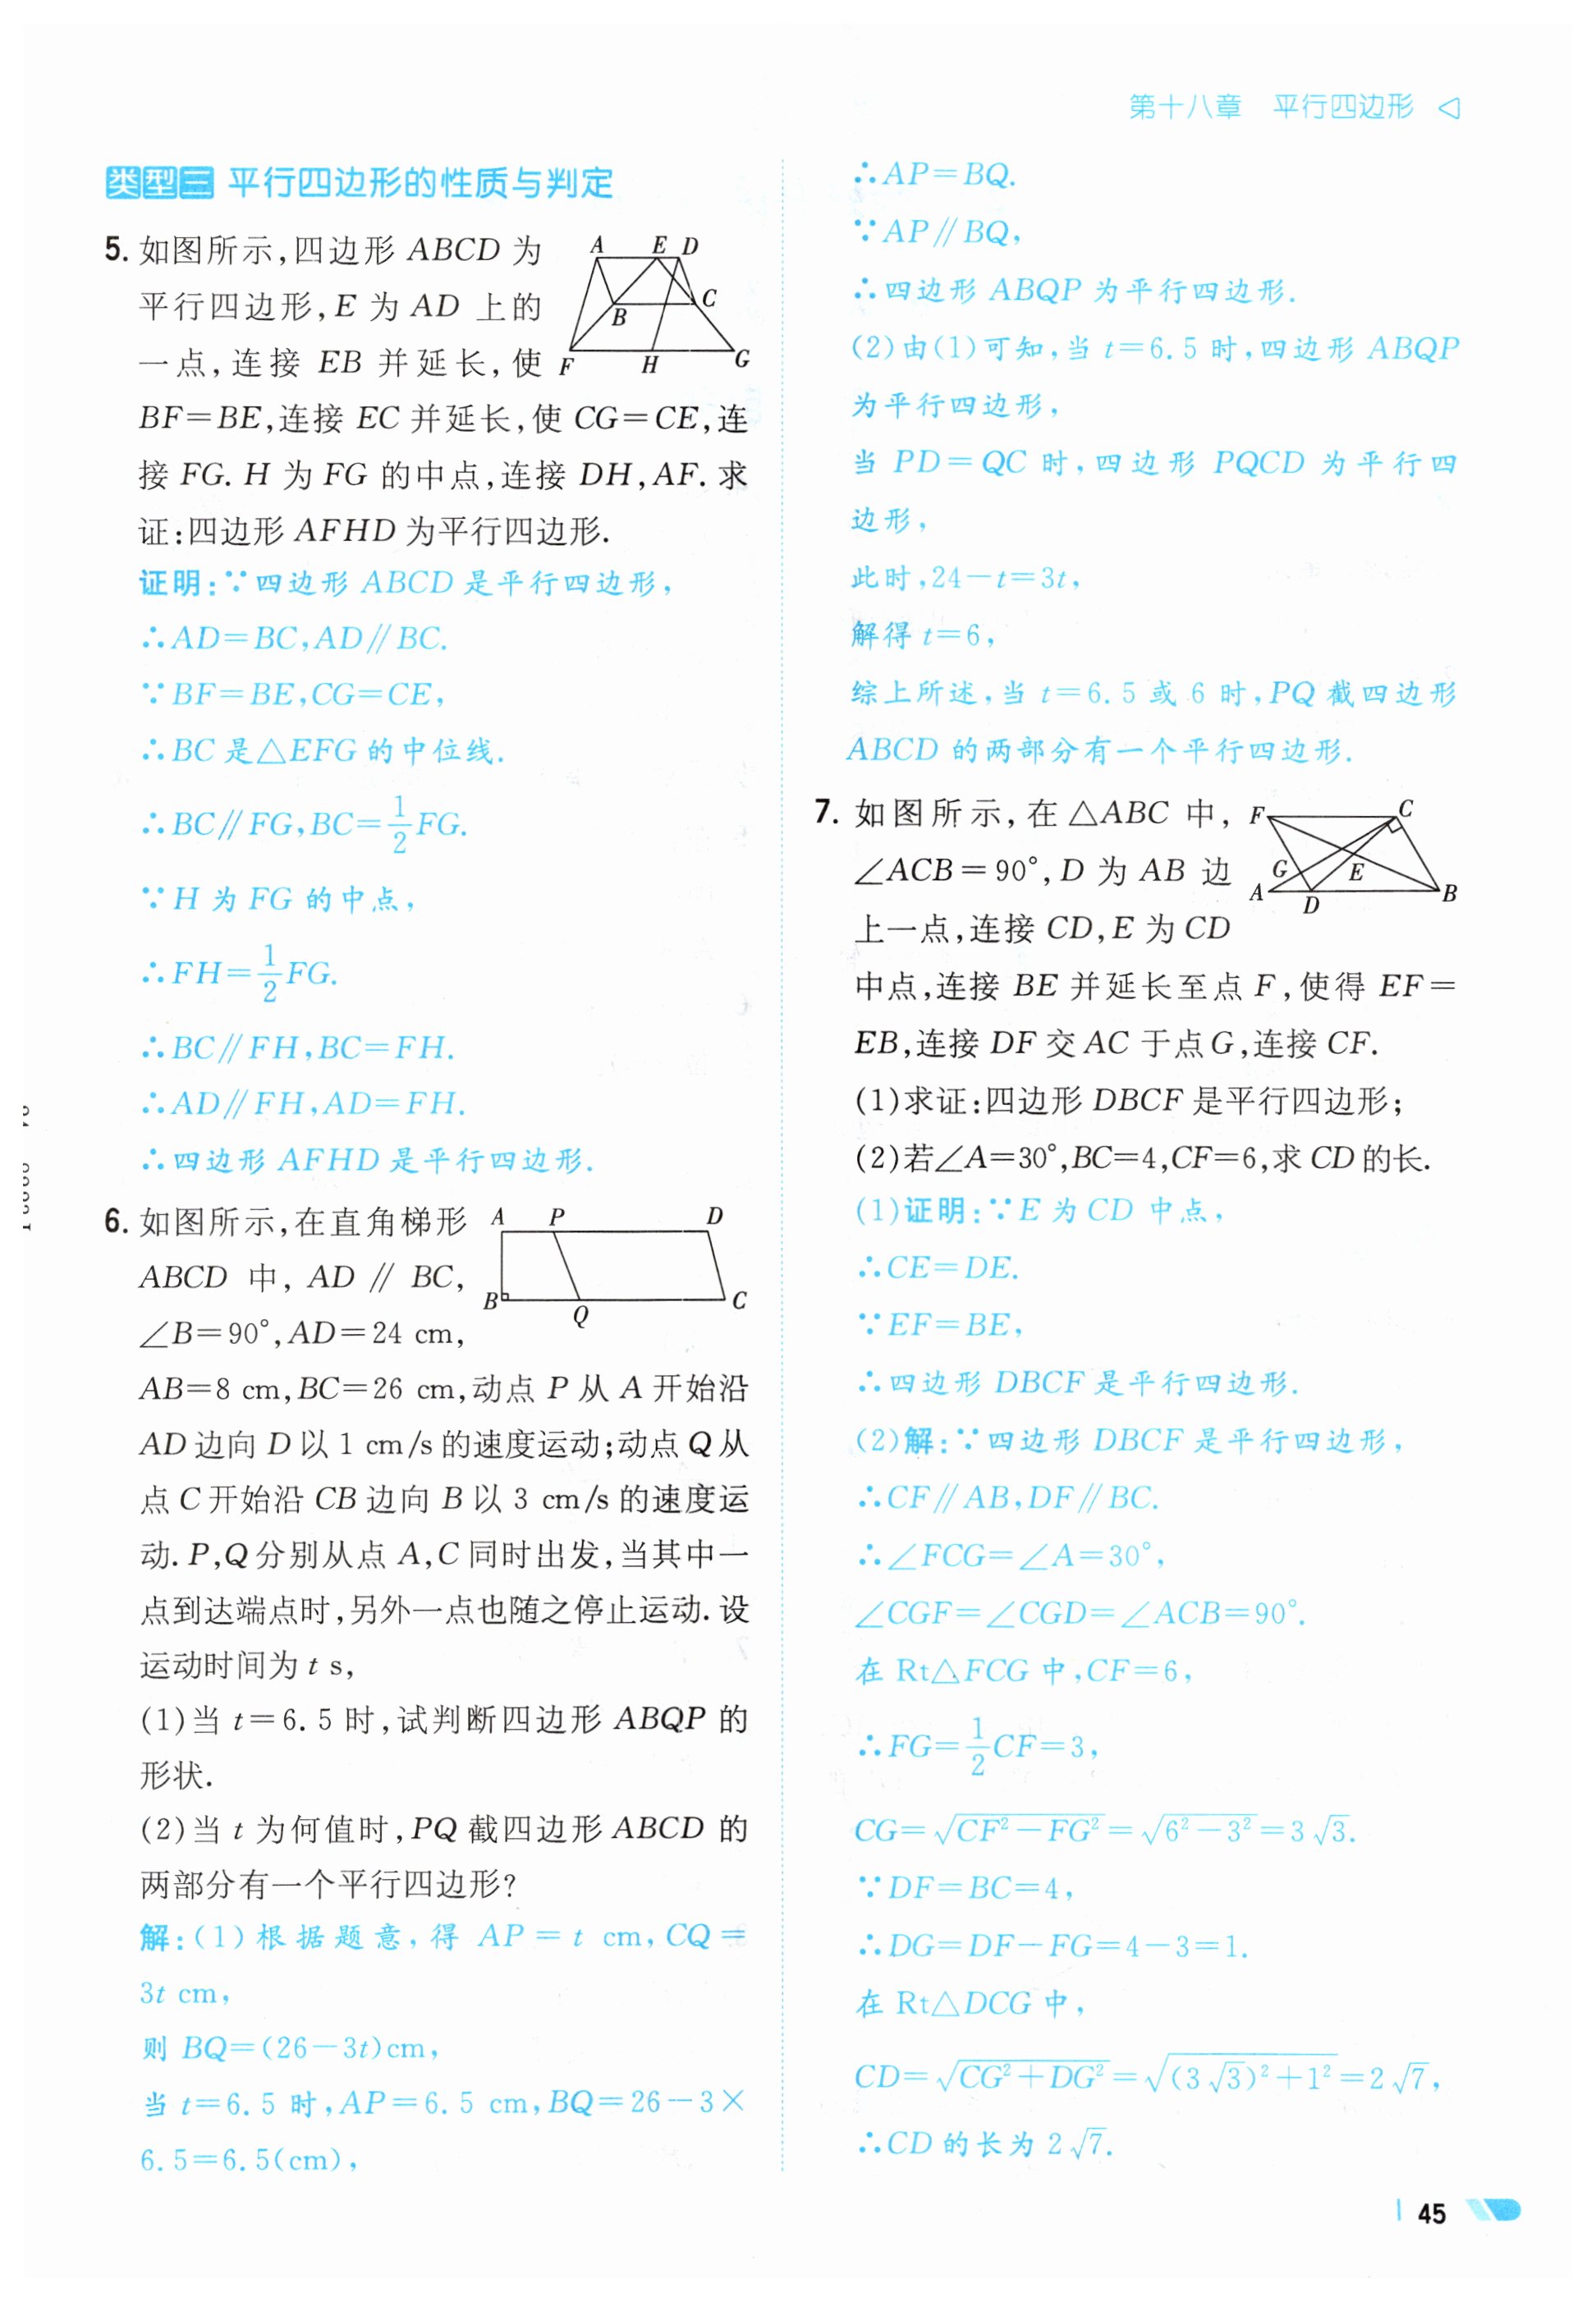 第十八章 平行四边形
类型三 平行四边形的性质与判定
5. 如图所示,四边形 ABCD 为
平行四边形,E 为 AD 上的
一点,连接 EB 并延长,使
BF=BE,连接 EC 并延长,使 CG=CE,连
接 FG. H 为 FG 的中点,连接 DH,AF. 求
证:四边形 AFHD 为平行四边形.
A E D
B C
F H G
证明:∵四边形 ABCD 是平行四边形,
∴AD=BC,AD∥BC.
∵BF=BE,CG=CE,
∴BC 是△EFG 的中位线.
∴BC∥FG,BC=1/2FG.
∵H 为 FG 的中点,
∴FH=1/2FG.
∴BC∥FH,BC=FH.
∴AD∥FH,AD=FH.
∴四边形 AFHD 是平行四边形.
6. 如图所示,在直角梯形
ABCD 中, AD ∥ BC,
∠B=90°,AD=24 cm,
A P D
B Q C
AB=8 cm,BC=26 cm,动点 P 从 A 开始沿
AD 边向 D 以 1 cm/s 的速度运动;动点 Q 从
点 C 开始沿 CB 边向 B 以 3 cm/s 的速度运
动. P,Q 分别从点 A,C 同时出发,当其中一
点到达端点时,另外一点也随之停止运动. 设
运动时间为 t s,
(1)当 t=6.5 时,试判断四边形 ABQP 的
形状.
(2)当 t 为何值时,PQ 截四边形 ABCD 的
两部分有一个平行四边形?
解:(1)根据题意,得 AP = t cm,CQ =
3t cm,
则 BQ=(26-3t)cm,
当 t=6.5 时,AP=6.5 cm,BQ=26-3×
6.5=6.5(cm),
∴AP=BQ.
∵AP∥BQ,
∴四边形 ABQP 为平行四边形.
(2)由(1)可知,当 t=6.5 时,四边形 ABQP
为平行四边形,
当 PD=QC 时,四边形 PQCD 为平行四
边形,
此时,24-t=3t,
解得 t=6,
综上所述,当 t=6.5 或 6 时,PQ 截四边形
ABCD 的两部分有一个平行四边形.
7. 如图所示,在△ABC 中,
∠ACB=90°,D 为 AB 边
上一点,连接 CD,E 为 CD
F C
G E
A D B
中点,连接 BE 并延长至点 F,使得 EF=
EB,连接 DF 交 AC 于点 G,连接 CF.
(1)求证:四边形 DBCF 是平行四边形;
(2)若∠A=30°,BC=4,CF=6,求 CD 的长.
(1)证明:∵E 为 CD 中点,
∴CE=DE.
∵EF=BE,
∴四边形 DBCF 是平行四边形.
(2)解:∵四边形 DBCF 是平行四边形,
∴CF∥AB,DF∥BC.
∴∠FCG=∠A=30°,
∠CGF=∠CGD=∠ACB=90°.
在 Rt△FCG 中,CF=6,
∴FG=1/2CF=3,
CG=√(CF²-FG²)=√(6²-3²)=3√3.
∵DF=BC=4,
∴DG=DF-FG=4-3=1.
在 Rt△DCG 中,
CD=√(CG²+DG²)=√((3√3)²+1²)=2√7,
∴CD 的长为 2√7.
45